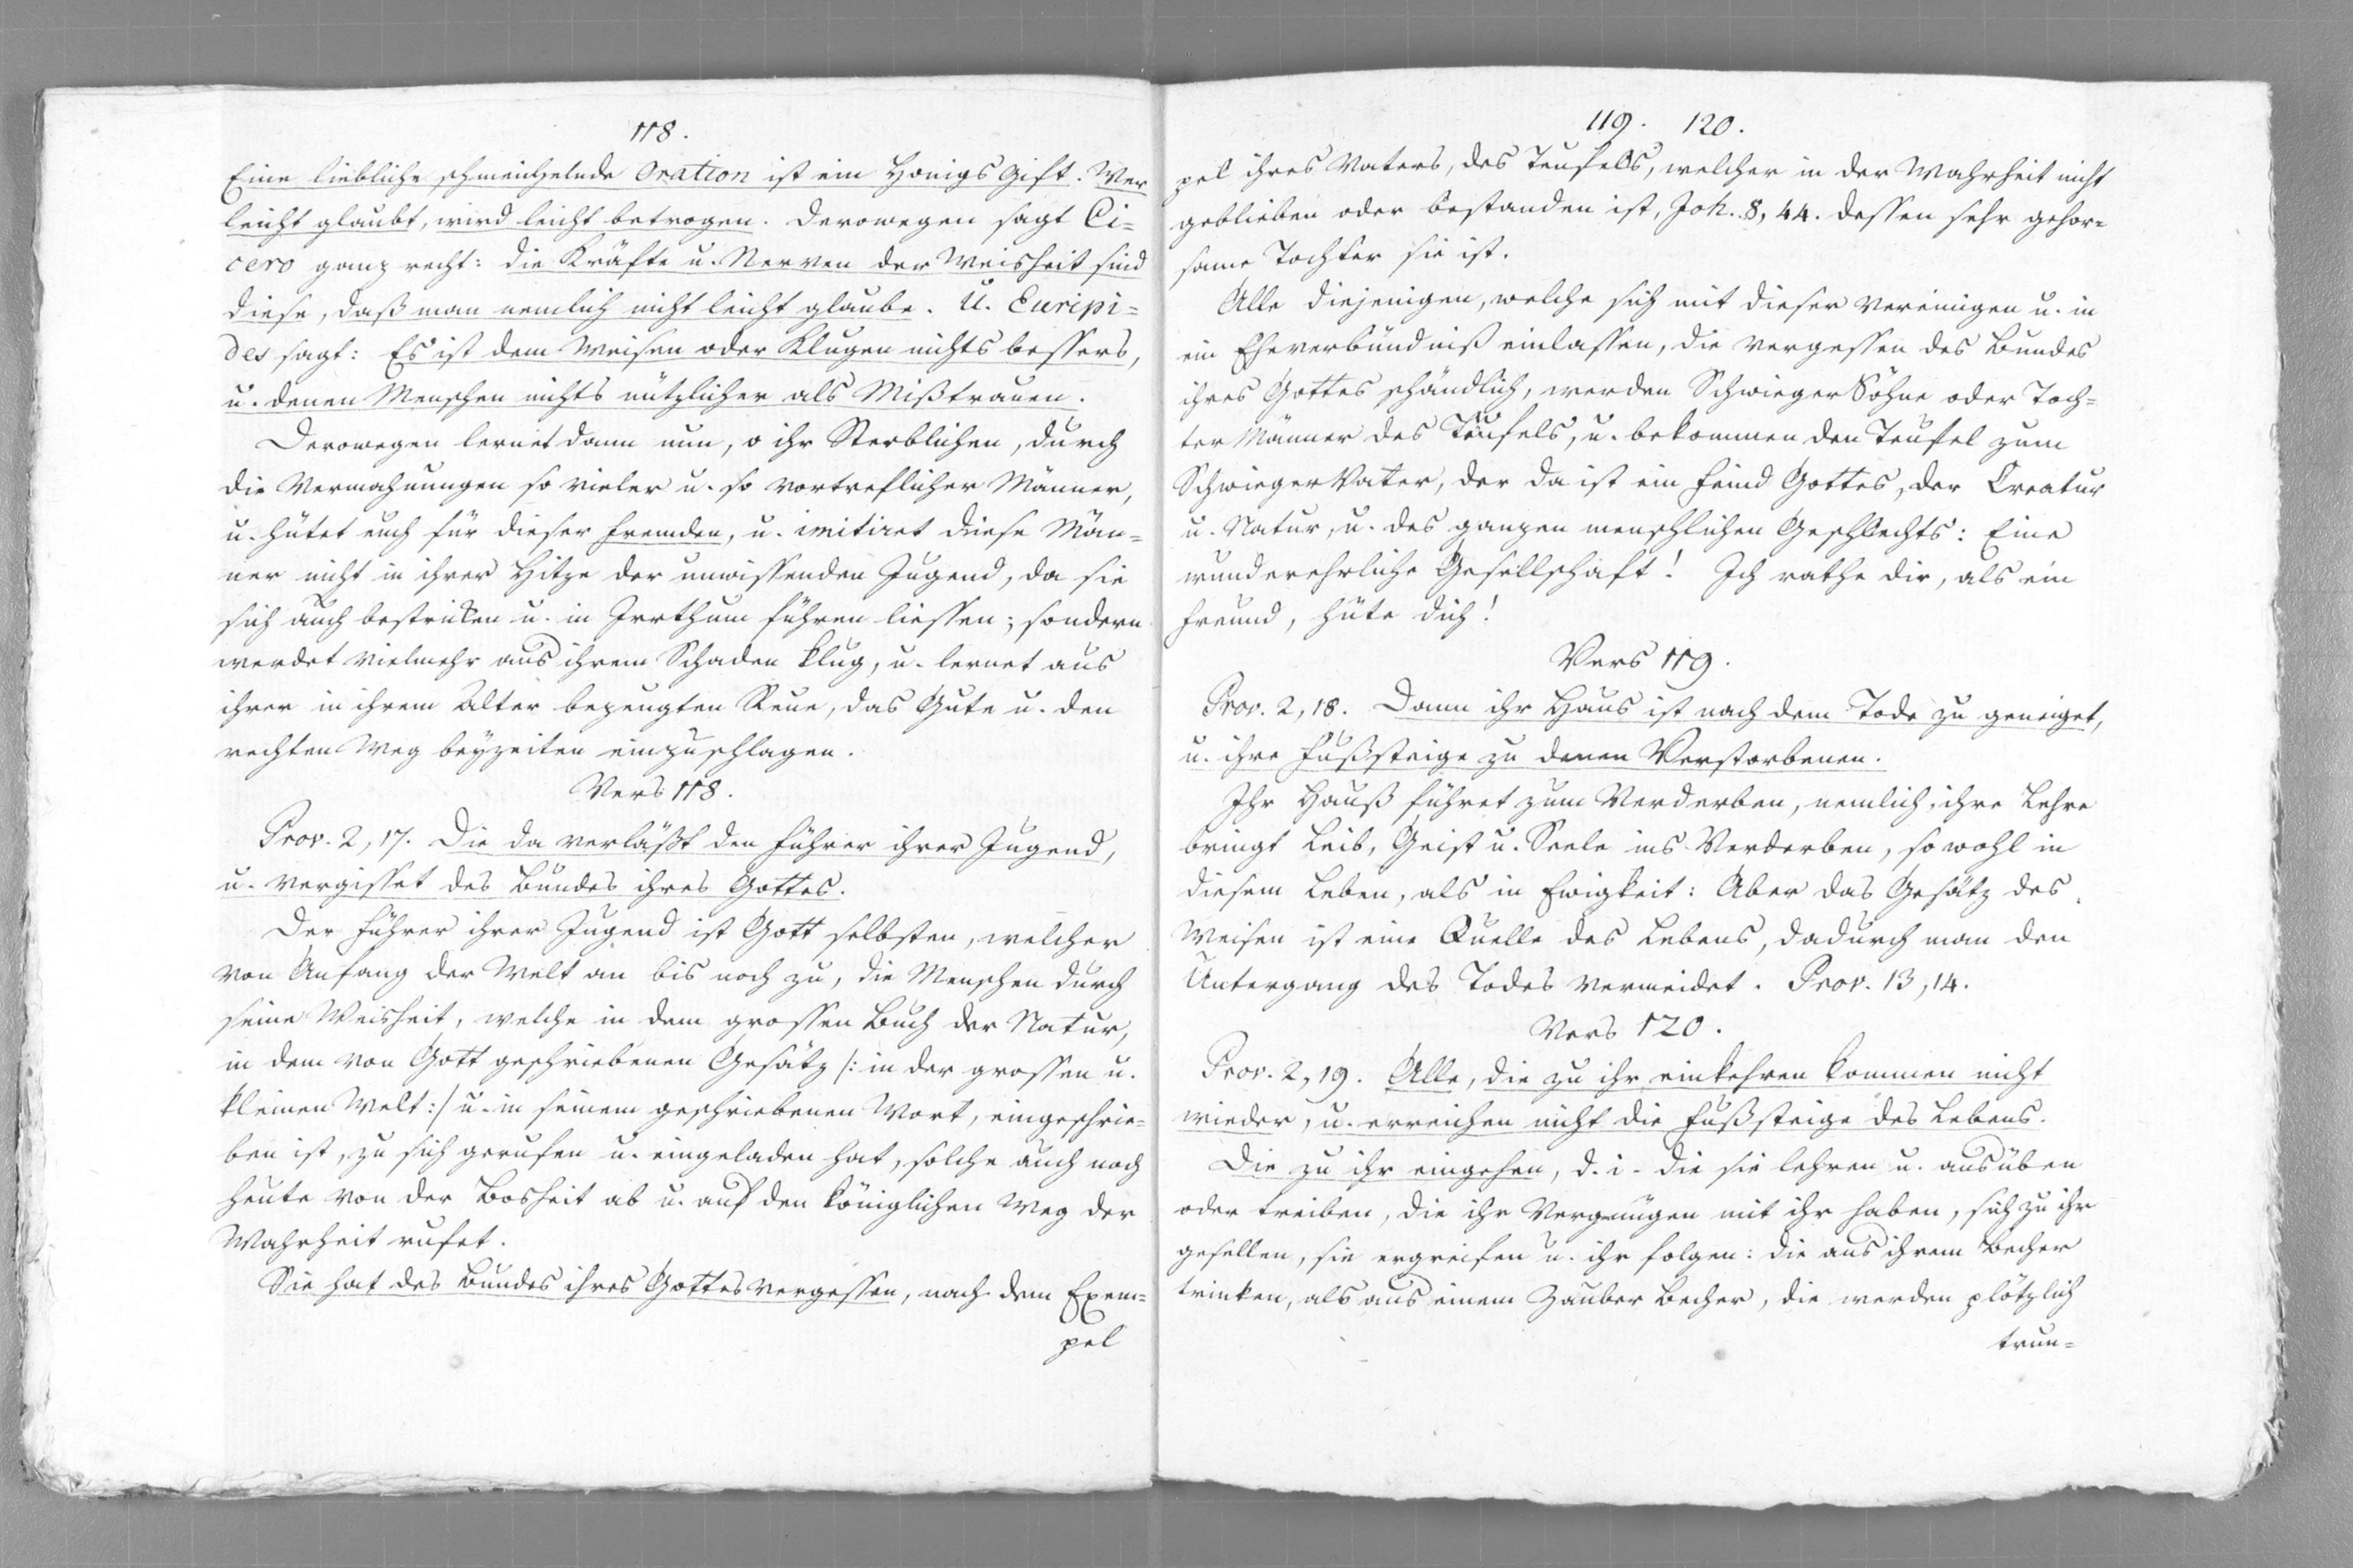 118.
Eine liebliche schmeichelnde Oration ist ein Honigs Gift. Wer
leicht glaubt, wird leicht betrogen. Derowegen sagt Ci=
cero ganz recht: die Kräfte u. Nerven der Weisheit sind
diese, daß man nemlich nicht leicht glaube. U. Euripi=
des sagt: Es ist dem Weisen oder Klugen nichts bessers,
u. denen Menschen nichts nützlicher als Mißtrauen.
Derowegen lernet dann nun, o ihr Sterblichen, durch
die Vermahnungen so vieler u. so vortreflicher Männer,
u. hütet euch für dieser fremden, u. imitiret diese Män=
ner nicht in ihrer Hitze der unwissenden Jugend, da sie
sich auch bestricken u. in Irrthum führen liessen; sondern
werdet vielmehr aus ihrem Schaden klug, u. lernet aus
ihrer in ihrem Alter bezeugten Reue, das Gute u. den
rechten Weg beyzeiten einzuschlagen.
Vers 118.
Prov. 2, 17. Die da verläßt den Führer ihrer Jugend,
u. vergisset des Bundes ihres Gottes.
Der Führer ihrer Jugend ist Gott selbsten, welcher
von Anfang der Welt an bis noch zu, die Menschen durch
seine Weisheit, welche in dem grossen Buch der Natur,
in dem von Gott geschriebenen Gesätz /: in der grossen u.
kleinen Welt :/ u. in seinem geschriebenen Wort, eingeschrie=
ben ist, zu sich gerufen u. eingeladen hat, solche auch noch
heute von der Bosheit ab u. auf den königlichen Weg der
Wahrheit rufet.
Sie hat des Bundes ihres Gottes vergessen, nach dem Exem=
pel
119. 120.
pel ihres Vaters, des Teufels, welcher in der Wahrheit nicht
geblieben oder bestanden ist, Joh. 8, 44. dessen sehr gehor=
same Tochter sie ist.
Alle diejenigen, welche sich mit dieser vereinigen u. in
ein Eheverbündniß einlassen, die vergessen des Bundes
ihres Gottes schändlich, werden Schwieger Söhne oder Toch=
ter Männer des Teufels, u. bekommen den Teufel zum
Schwieger Vater, der da ist ein Feind Gottes, der Creatur
u. Natur, u. des ganzen menschlichen Geschlechts: Eine
wunderehrliche Gesellschaft! Ich rathe dir, als ein
Freund, hüte dich!
Vers 119.
Prov. 2, 18. Dann ihr Haus ist nach dem Tode zu geneiget,
u. ihre Fußsteige zu denen Verstorbenen.
Ihr Hauß führet zum Verderben, nemlich, ihre Lehre
bringt Leib, Geist u. Seele ins Verderben, so wohl in
diesem Leben, als in Ewigkeit: Aber das Gesätz des
Weisen ist eine Quelle des Lebens, dadurch man den
Untergang des Todes vermeidet. Prov. 13, 14.
Vers 120.
Prov. 2, 19. Alle, die zu ihr einkehren kommen nicht
wieder, u. erreichen nicht die Fußsteige des Lebens.
Die zu ihr eingehen, d. i. die sie lehren u. ausüben
oder treiben, die ihr Vergnügen mit ihr haben, sich zu ihr
gesellen, sie ergreifen u. ihr folgen: die aus ihrem Becher
trinken, als aus einem Zauber Becher, die werden plötzlich
trun=